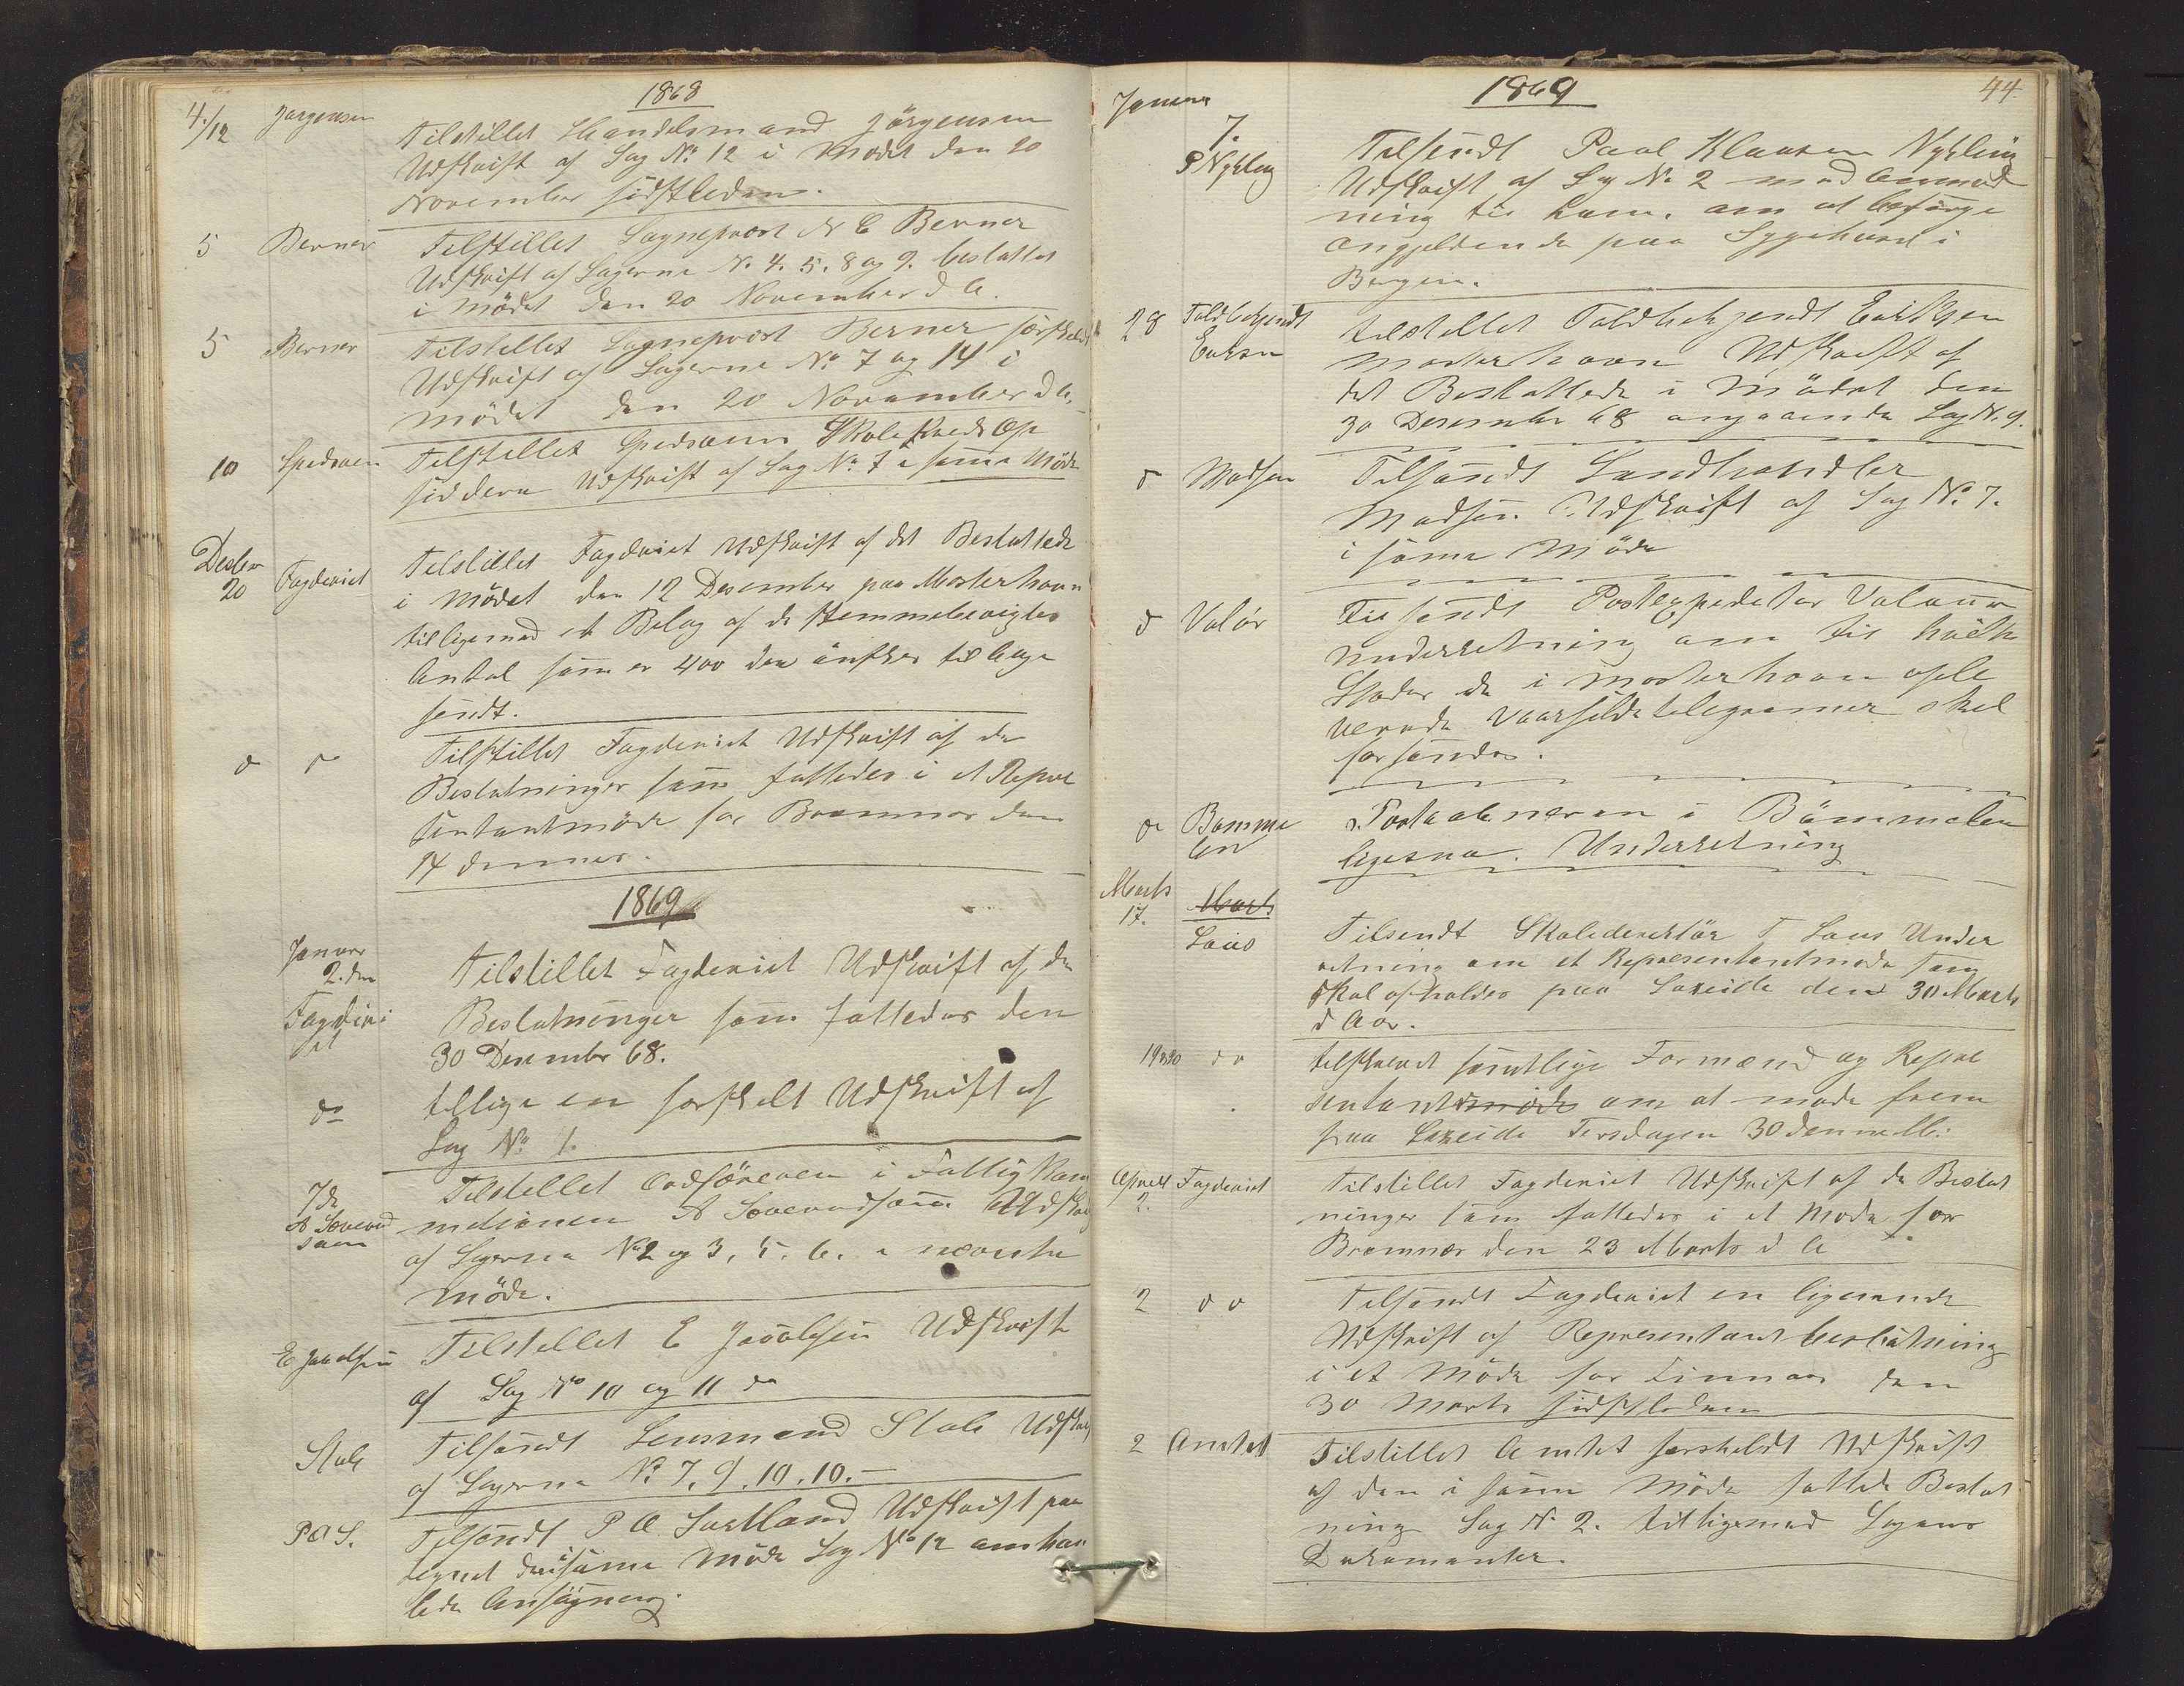 1868
4./12 Jørgensen Tilstillet Handelsmand Jörgensen
Udskrift af Sag No 12 i Mødet den 20
November sidstleden.
5 Berner Tilstillet Sogneprest N E Berner
Udskrift af Sagerne No 4. 5. 8 og 9. besluttet
i Mödet den 20 November d A.
5 Berner Tilstillet Sogneprest Berner særskildt
Udskrift af Sagerne No 7 og 14 i
Mödet den 20 November d A.
10 Tilstillet Skole
Udskrift af Sag No 7 i samme Möde
Decbr
20 Fogderiet Tilstillet Fogderiet Udskrift af det Besluttede
i Mödet den 12 Desember paa Mosterhavn
tilligemed et Belag af de Stemmeberigtes
Antal som er 400 den önskes tilbage
sendt.
do do Tilstillet Fogderiet Udskrift af de
Beslutninger som fattedes i et Repræ
sentantmöde for Bremnes den
14 dennes.
1869
Januar
2. den
Fogderi
et
Tilstillet Fogderiet Udskrift af de
Beslutninger som fattedes den
30 Desember 68.
do tillige en særskelt Udskrift af
Sag No 1.
7de
Tilstillet Ordföreren i Fattigkom
misionen Udskrift
af Sagerne No 2 og 3, 5. 6. i nævnte
Möde.
E Jacobsen Tilstillet E Jacobsen Udskrift
af Sag No 10 og 11 do
Stab Tilsendt Lensmand Stab Udskrift
af Sagerne No 7. 9. 10. 10.
P O S. Tilsendt P O Udskrift paa
tegnet den i samme Möde Sag No 12 omhan
lede Ansögning.
1869
44
Januar
7.
P Nykling
Tilsendt Paul Klausen Nykling
Udskrift af Sag No 2 med Anmod
ning til ham, om at besörge
angjeldende paa Sygehuset i
Bergen.
28 Toldbetjendt
Eriksen
tilstillet Toldbetjendt Eriksen
Mosterhavn Udskrift af
det Besluttede i Mödet den
30 Desember 68 angaaende Sag No 9.
do Madsen Tilsendt Landhandler
Madsen Udskrift af Sag No 7.
i samme Möde
do Valör Tilsendt Postexpeditør
underretning om til hvilke
Steder de i Mosterhavn
Vaarsildstelegramer skal
forsendes.
do Bømme
len
Postaabneren i Bömmelen
ligesaa. Underretning
Marts
17.
Marts
Laus
Tilsendt Skoledirektör T Laus Under
retning om et Representantmöde som
skal afholdes paa Lexeide den 30 Marts
d Aar.
19 do tilskrevet samtlige Formænd og Repræ
sentantmöde om at møde frem
paa Lexeide Tirsdagen 30 den
April
2.
Fogderiet
Tilstillet Fogderiet Udskrift af de Beslut
ninger som fattedes i et Möde for
Bremnes den 23 Marts d A
2 do Tilsendt Fogderiet en ligerende
Udskrift af Representant beslutning
i et Möde for Finnaas den
30 Marts sidstleden
2 Amtet Tilstillet Amtet særskeldt Udskrift
af den i samme Möde fattede Beslut
ning Sag No 2. tilligemed Sagens
Dokumenter.